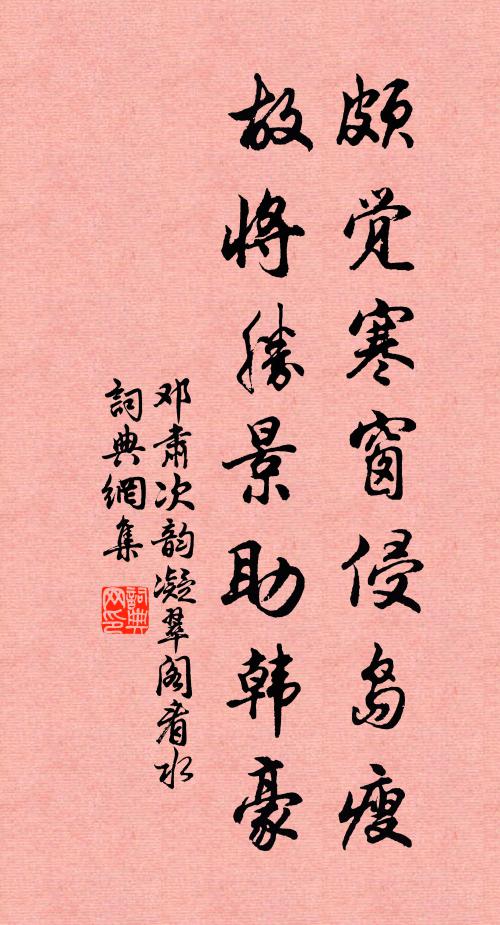 颇觉寒窗侵岛瘦
故将胜景助韩豪
邓肃次韵凝翠阁看水
词典網集
詞典网印